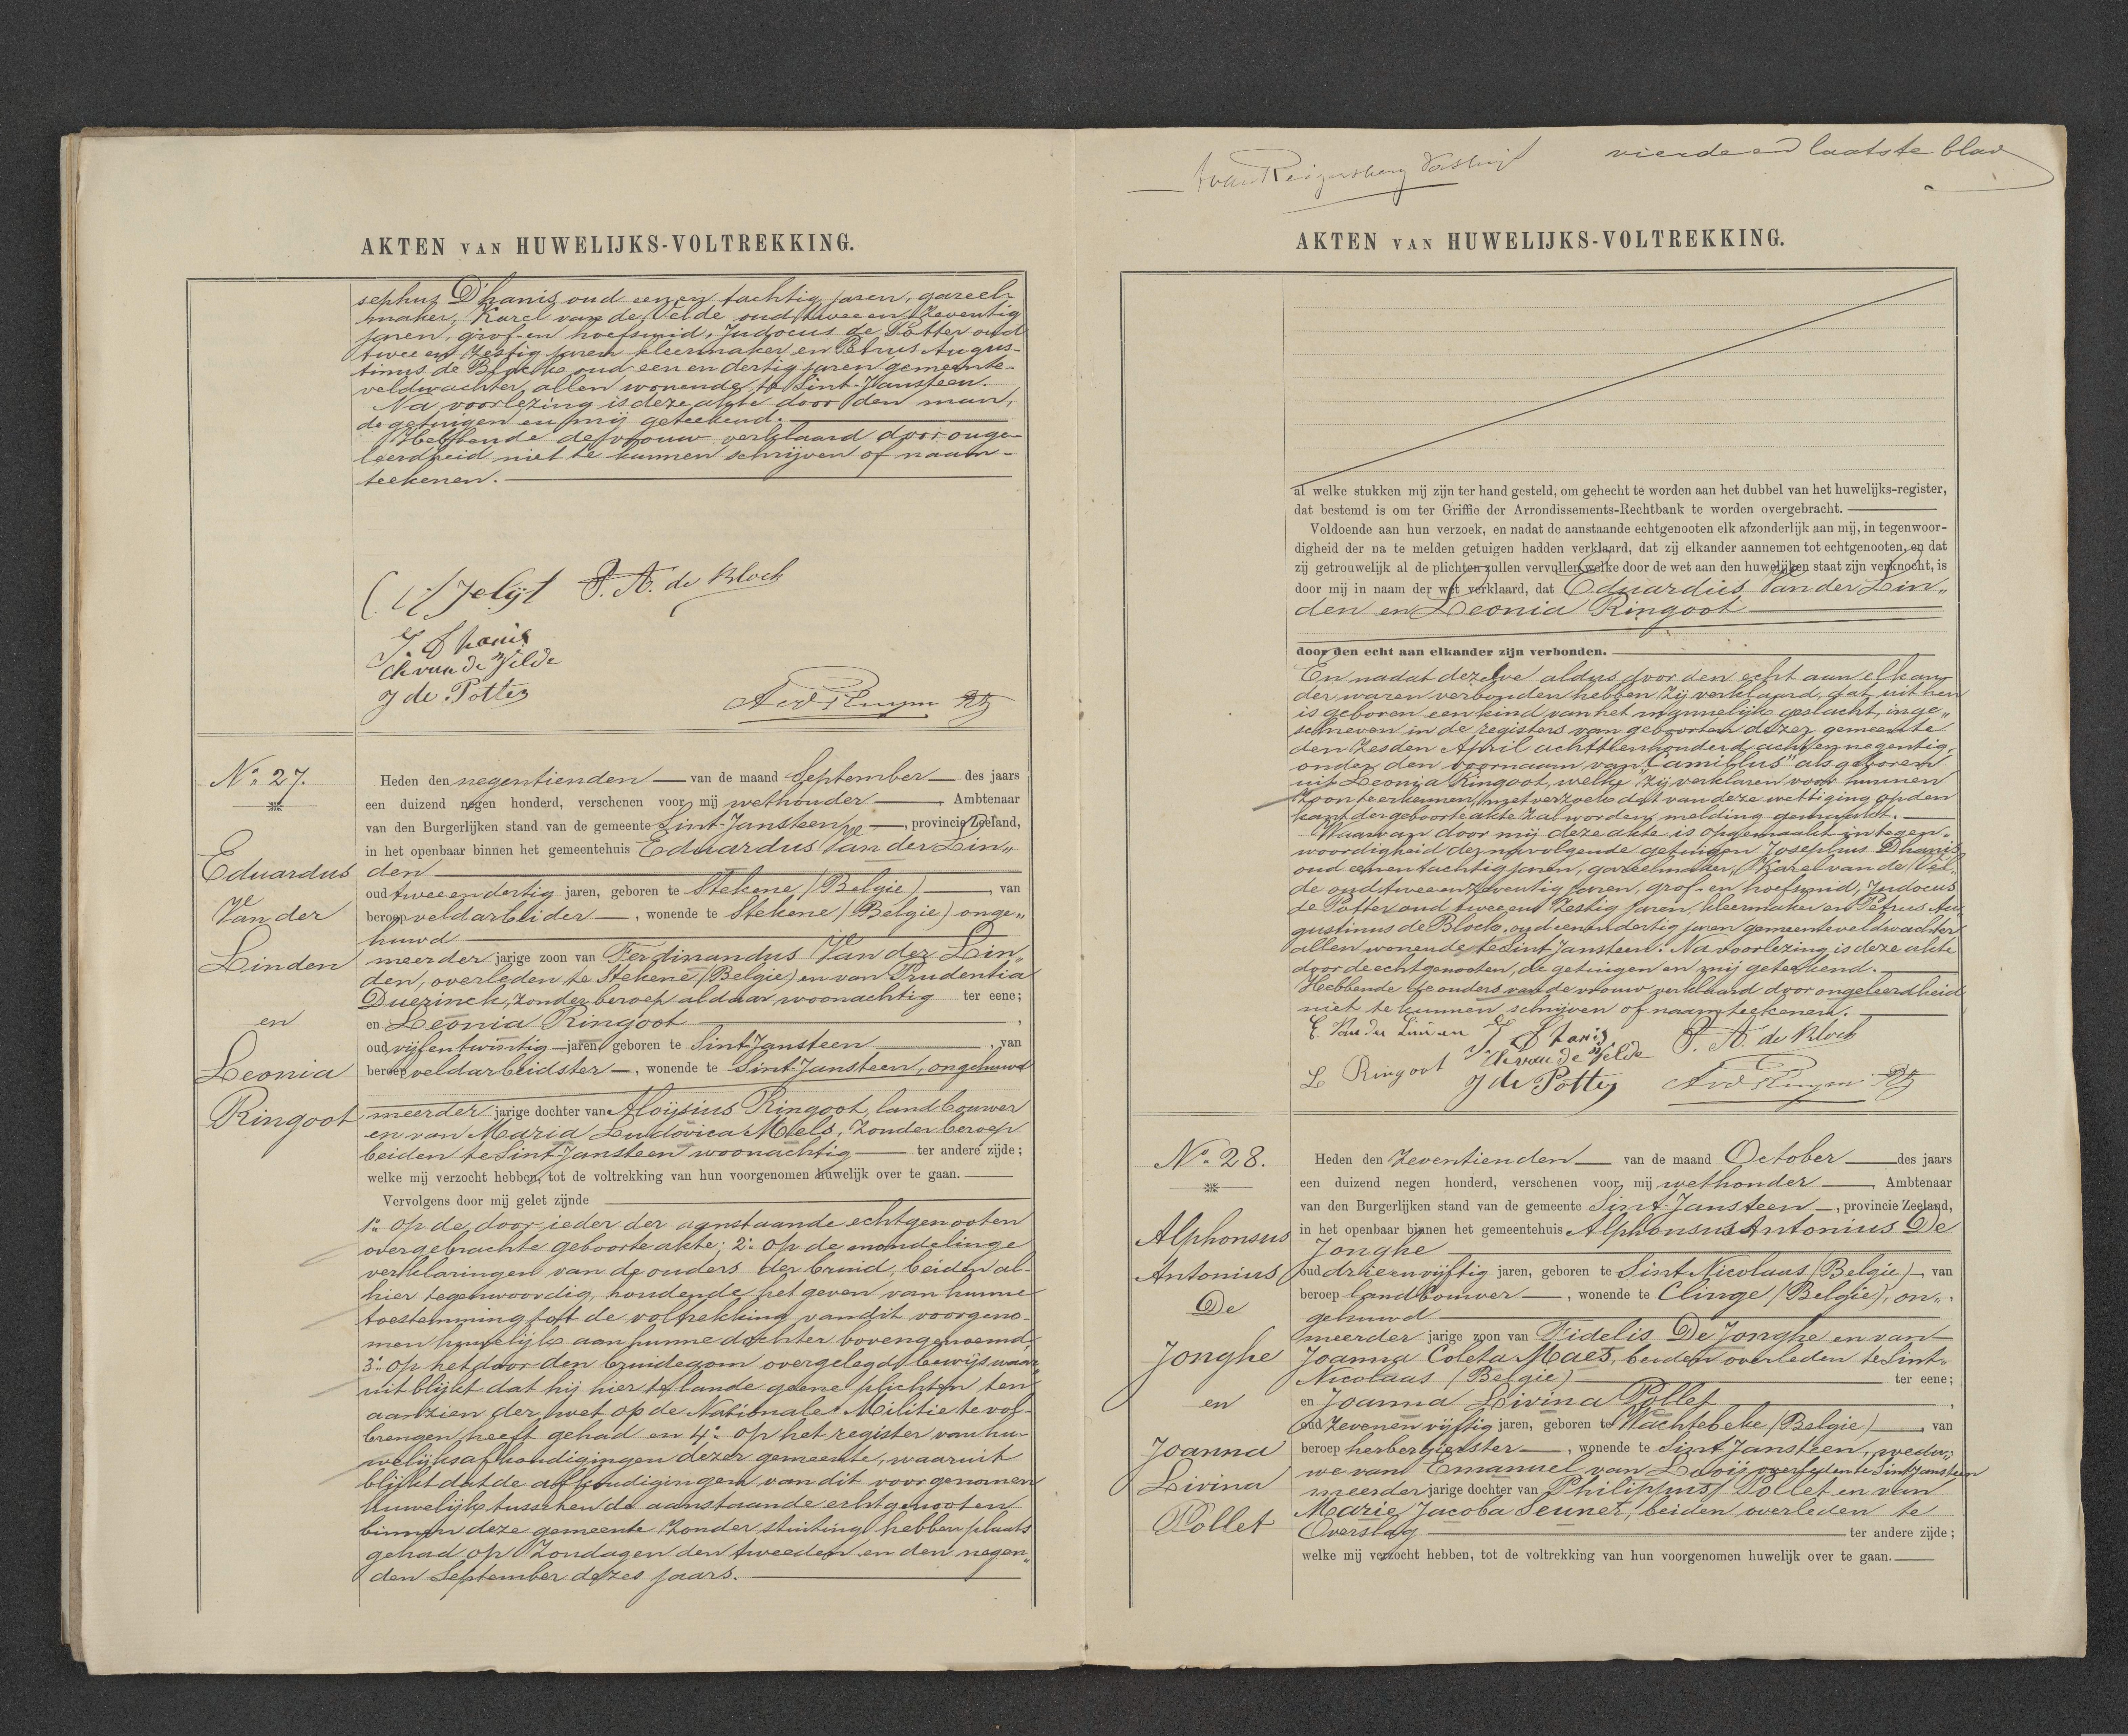 AKTEN VAN HUWELIJKS-VOLTREKKING.
sephus D'hanis oud een en tachtig jaren, gareel-
maker, Karel van de Velde oud twee en zeventig
jaren, grof- en hoefsmid, Judocus de Potter oud
twee en zestig jaren kleermaker en Petrus Augus-
tinus de Block oud een en dertig jaren gemeente-
veldwachter, allen wonende te Sint-Jansteen.
Na voorlezing is deze akte door den man,
de getuigen en mij geteekend.
Hebbende de vrouw verklaard door onge-
leerdheid niet te kunnen schrijven of naam-
teekenen.
P. A. de Bloch
J. Dhanis
Ch van de Velde
J de Potter
No. 27.
Eduardus
Van der
Linden
en
Leonia
Ringoot
Heden den negentienden van de maand September des jaars
een duizend negen honderd, verschenen voor mij wethouder, Ambtenaar
van den Burgerlijken stand van de gemeente Sint-Jansteen, provincie Zeeland,
in het openbaar binnen het gemeentehuis Eduardus Van der Lin„
den
oud twee en dertig jaren, geboren te Stekene (Belgie), van
beroep veldarbeider, wonende te Stekene (Belgie) onge„
huwd
meerder jarige zoon van Ferdinandus Van der Lin„
den, overleden te Stekene (Belgie) en van Prudentia
Duerinck, zonder beroep aldaar woonachtig ter eene;
en Leonia Ringoot,
oud vijf en twintig jaren, geboren te Sint-Jansteen, van
beroep veldarbeidster, wonende te Sint-Jansteen, ongehuwd
meerder jarige dochter van Aloijsius Ringoot, landbouwer
en van Maria Ludovica Meels, zonder beroep
beiden te Sint-Jansteen woonachtig ter andere zijde;
welke mij verzocht hebben, tot de voltrekking van hun voorgenomen huwelijk over te gaan.
Vervolgens door mij gelet zijnde
1o op de door ieder der aanstaande echtgenooten
overgebrachte geboorteakte; 2o op de mondelinge
verklaringen van de ouders der bruid, beiden al-
hier tegenwoordig, houdende het geven van hunne
toestemming tot de voltrekking van dit voorgeno-
men huwelijk aan hunne dochter bovengenoemd;
3o op het door den bruidegom overgelegde bewijs waar„
uit blijkt dat hij hier te lande geene plichten ten
aanzien der wet op de Nationale Militie te vol-
brengen heeft gehad en 4o op het register van hu-
welijksafkondigingen dezer gemeente, waaruit
blijkt dat de afkondigingen van dit voorgenomen
huwelijk tusschen de aanstaande echtgenooten
binnen deze gemeente zonder stuiting hebben plaats
gehad op Zondagen den tweeden en den negen„
den September dezes jaars.
vierde en laatste blad
AKTEN VAN HUWELIJKS-VOLTREKKING.
al welke stukken mij zijn ter hand gesteld, om gehecht te worden aan het dubbel van het huwelijks-register,
dat bestemd is om ter Griffie der Arrondissements-Rechtbank te worden overgebracht.
Voldoende aan hun verzoek, en nadat de aanstaande echtgenooten elk afzonderlijk aan mij, in tegenwoor-
digheid der na te melden getuigen hadden verklaard, dat zij elkander aannemen tot echtgenooten, en dat
zij getrouwelijk al de plichten zullen vervullen, welke door de wet aan den huwelijken staat zijn verknocht, is
door mij in naam der wet verklaard, dat Eduardus Van der Lin„
den en Leonia Ringoot
door den echt aan elkander zijn verbonden.
En nadat dezelve aldus door den echt aan elkan-
der waren verbonden hebben zij verklaard, dat uit hen
is geboren een kind van het mannelijk geslacht, inge„
schreven in de registers van geboorten dezer gemeente
den zesden April achttienhonderd acht en negentig,
onder den voornaam van "Camillus" als geboren
uit Leonia Ringoot, welke zij verklaren voor hunnen
zoon te erkennen, met verzoek dat van deze wettiging op den
kant der geboorteakte zal worden melding gemaakt.
Waarvan door mij deze akte is opgemaakt in tegen„
woordigheid der navolgende getuigen Josephus Dhanis
oud een en tachtig jaren, gareelmaker, Karel van de Vel„
de oud twee en zeventig jaren, grof- en hoefsmid, Judocus
de Potter oud twee en zestig jaren, kleermaker en Petrus Au
gustinus de Block, oud een en dertig jaren gemeenteveldwachter
allen wonende te Sint Jansteen. Na voorlezing is deze akte
door de echtgenooten, de getuigen en mij geteekend.
Hebbende de ouders van de vrouw verklaard door ongeleerdheid
niet te kunnen schrijven of naamteekenen.
E. Van der Linden J. Dhanis P. A. de Bloch
L Ringoot Ch van de Velde
J de Potter
No. 28.
Alphonsus
Antonius
De
Jonghe
en
Joanna
Livina
Pollet
Heden den zeventienden van de maand October des jaars
een duizend negen honderd, verschenen voor mij wethouder, Ambtenaar
van den Burgerlijken stand van de gemeente Sint-Jansteen, provincie Zeeland,
in het openbaar binnen het gemeentehuis Alphonsus Antonius De
Jonghe
oud drie en vijftig jaren, geboren te Sint Nicolaas (Belgie), van
beroep landbouwer, wonende te Clinge (Belgie), on„
gehuwd
meerder jarige zoon van Fidelis De Jonghe en van
Joanna Coleta Maes, beiden overleden te Sint„
Nicolaas (Belgie) ter eene;
en Joanna Livina Pollet,
oud zeven en vijftig jaren, geboren te Wachtebeke (Belgie), van
beroep herbergierster, wonende te Sint Jansteen, wedu„
we van Emanuel van Looij overleden te Sint Jansteen
meerder jarige dochter van Philippus Pollet en van
Marie Jacoba Seunet, beiden overleden te
Overslag ter andere zijde;
welke mij verzocht hebben, tot de voltrekking van hun voorgenomen huwelijk over te gaan.